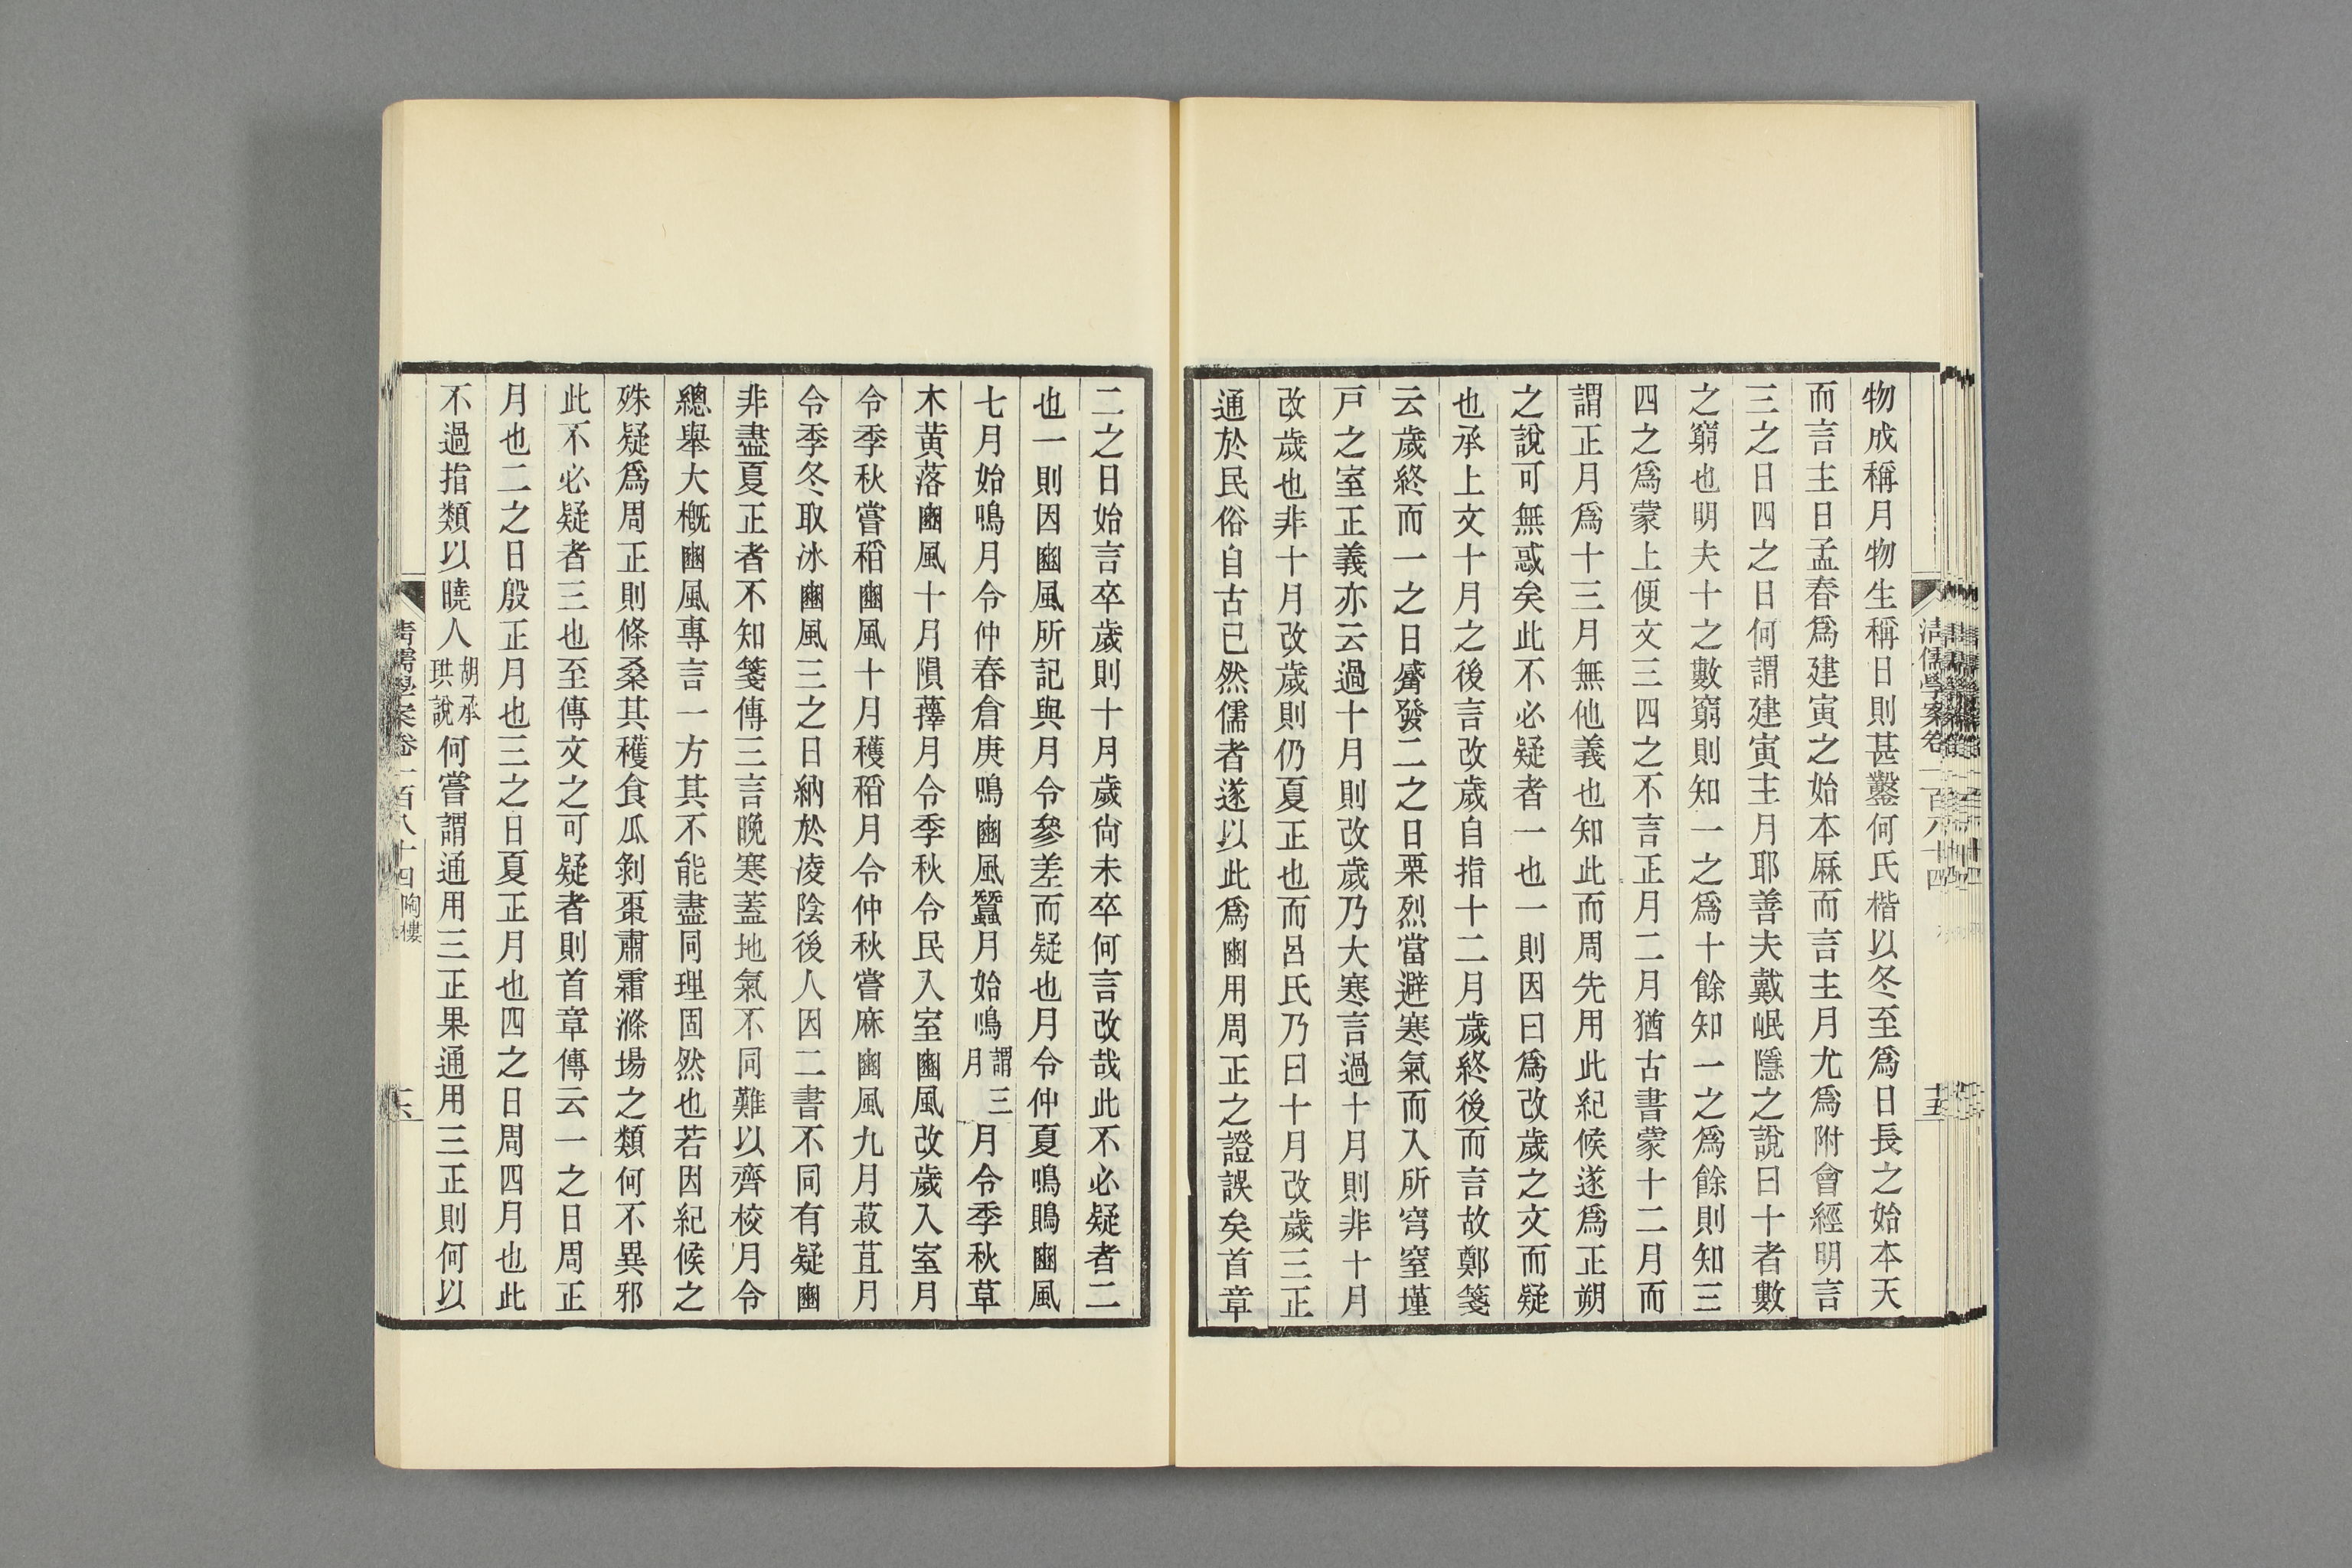 清儒學案卷一百八十四
十五
物成稱月物生稱日則甚鑿何氏楷以冬至爲日長之始本天
而言主日孟春爲建寅之始本厤而言主月尤爲附會經明言
三之日四之日何謂建寅主月耶善夫戴岷隱之說曰十者數
之窮也明夫十之數窮則知一之爲十餘知一之爲餘則知三
四之爲蒙上便文三四之不言正月二月猶古書蒙十二月而
謂正月爲十三月無他義也知此而周先用此紀候遂爲正朔
之說可無惑矣此不必疑者一也一則因曰爲改歲之文而疑
也承上文十月之後言改歲自指十二月歲終後而言故鄭箋
云歲終而一之日觱發二之日栗烈當避寒氣而入所穹窒墐
戸之室正義亦云過十月則改歲乃大寒言過十月則非十月
改歲也非十月改歲則仍夏正也而呂氏乃曰十月改歲三正
通於民俗自古已然儒者遂以此爲豳用周正之證誤矣首章
二之日始言卒歲則十月歲尙未卒何言改哉此不必疑者二
也一則因豳風所記與月令參差而疑也月令仲夏鳴鵙豳風
七月始鳴月令仲春倉庚鳴豳風蠶月始鳴謂三月月令季秋草
木黃落豳風十月隕蘀月令季秋令民入室豳風改歲入室月
令季秋嘗稻豳風十月穫稻月令仲秋嘗麻豳風九月菽苴月
令季冬取冰豳風三之日納於凌陰後人因二書不同有疑豳
非盡夏正者不知箋傳三言晚寒蓋地氣不同難以齊校月令
總舉大槪豳風專言一方其不能盡同理固然也若因紀候之
殊疑爲周正則條桑其穫食瓜剝棗肅霜滌場之類何不異邪
此不必疑者三也至傳文之可疑者則首章傳云一之日周正
月也二之日殷正月也三之日夏正月也四之日周四月也此
不過指類以曉人胡承珙說何嘗謂通用三正果通用三正則何以
清儒學案卷一百八十四 陶樓
十六